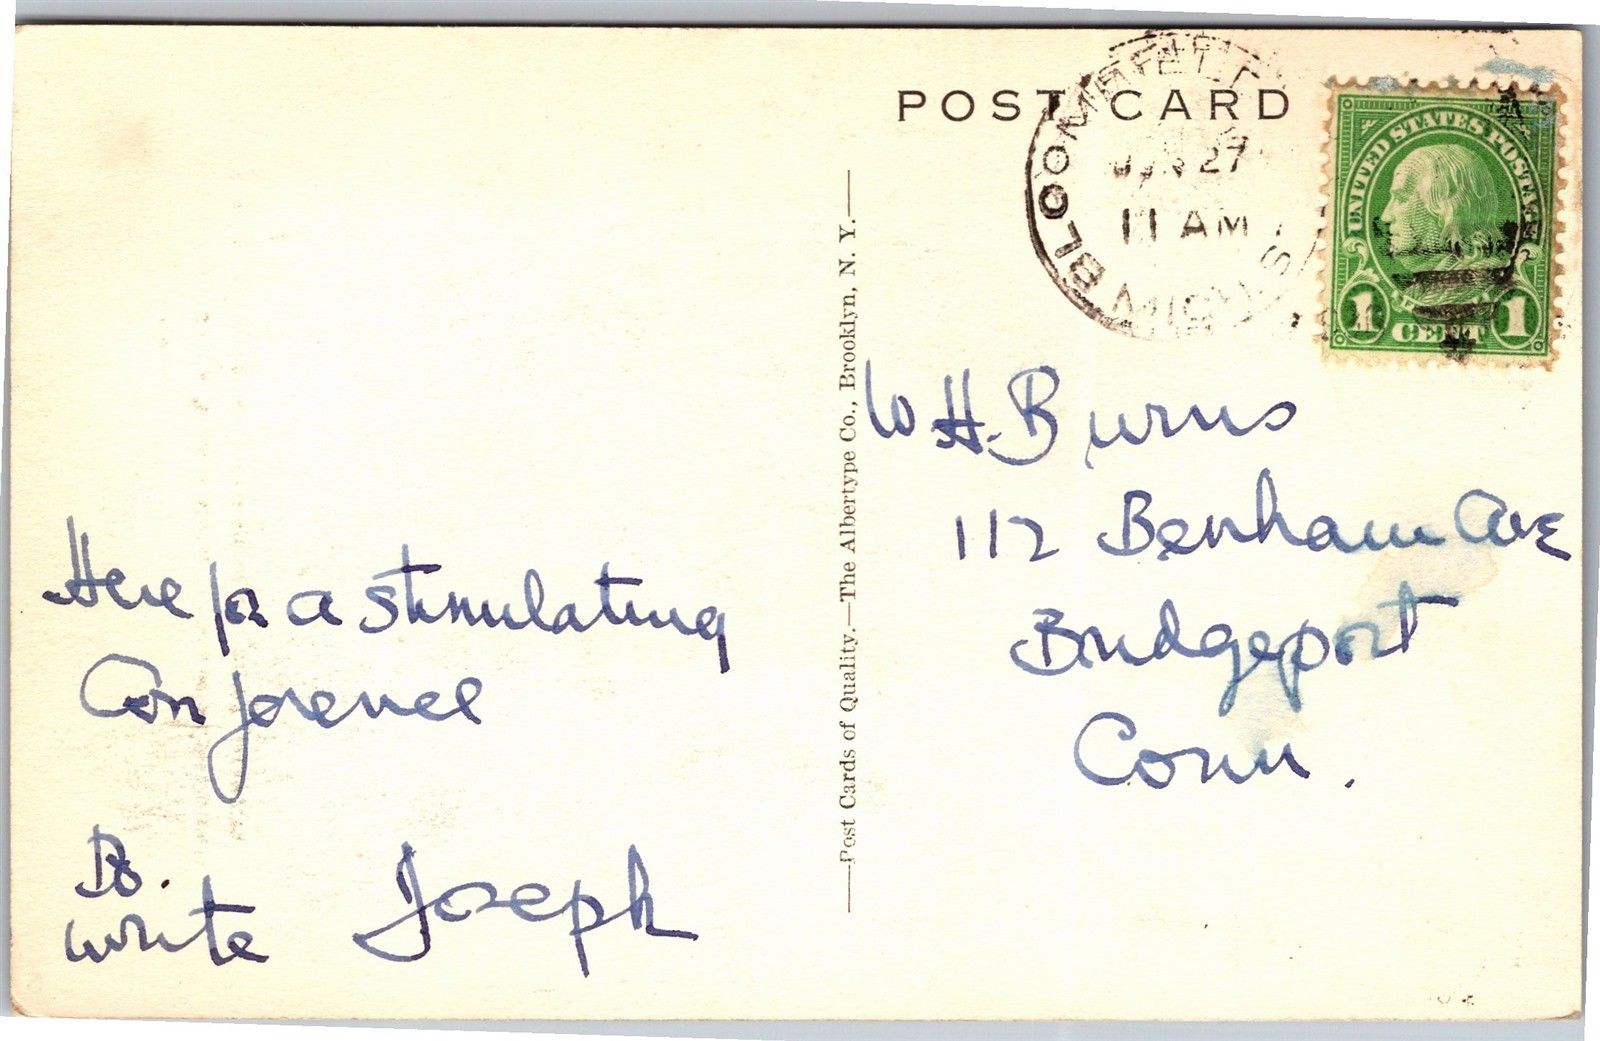 POST CARD
BLOOMFIELD HILLS
JUN 27
11 AM
MICH.
UNITED STATES POSTAGE
1 CENT 1
W H. Burns
112 Benham Ave
Bridgeport
Conn.
—Post Cards of Quality.—The Albertype Co., Brooklyn, N. Y.—
Here for a stimulating
Conference
Do.
write Joseph